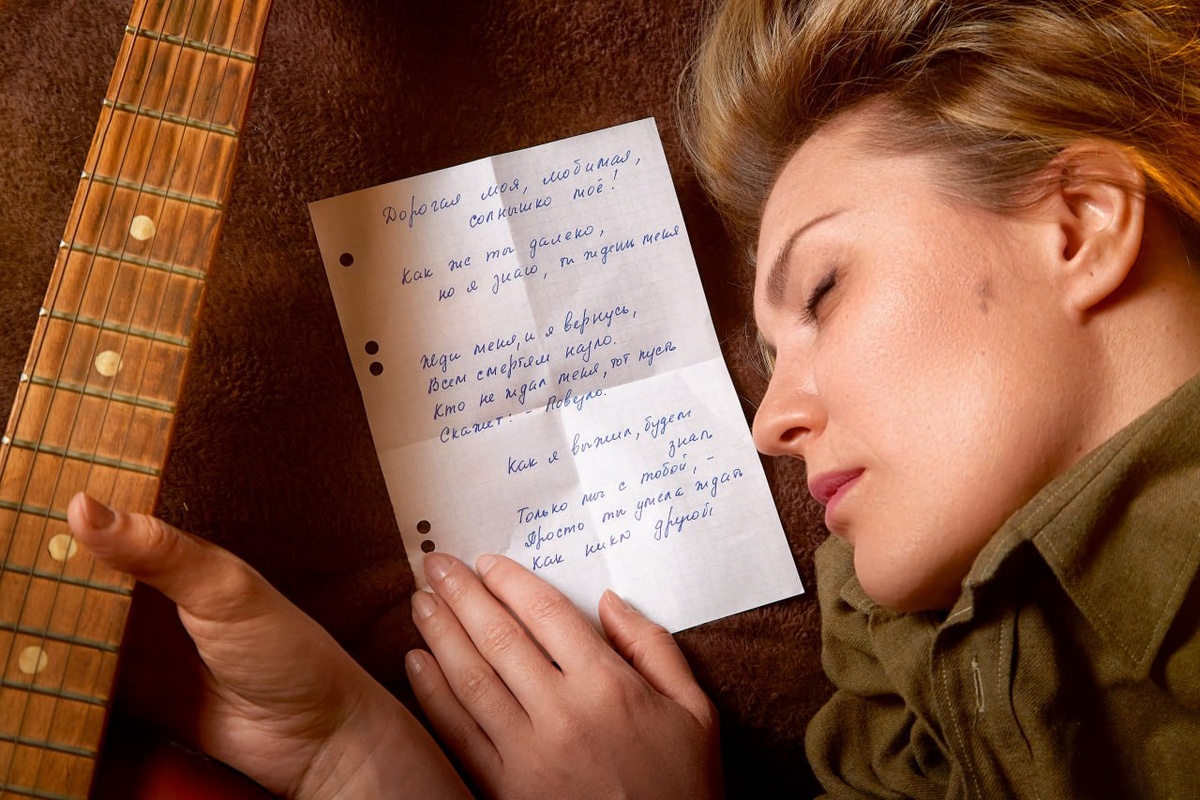 Дорогая моя, любимая,
солнышко моё!
Как же ты далеко,
но я знаю, ты ждешь меня
Жди меня, и я вернусь,
Всем смертям назло.
Кто не ждал меня, тот пусть
Скажет: - Повезло.
Как я выжил, будем
знать
Только мы с тобой, -
Просто ты умела ждать
Как никто другой!